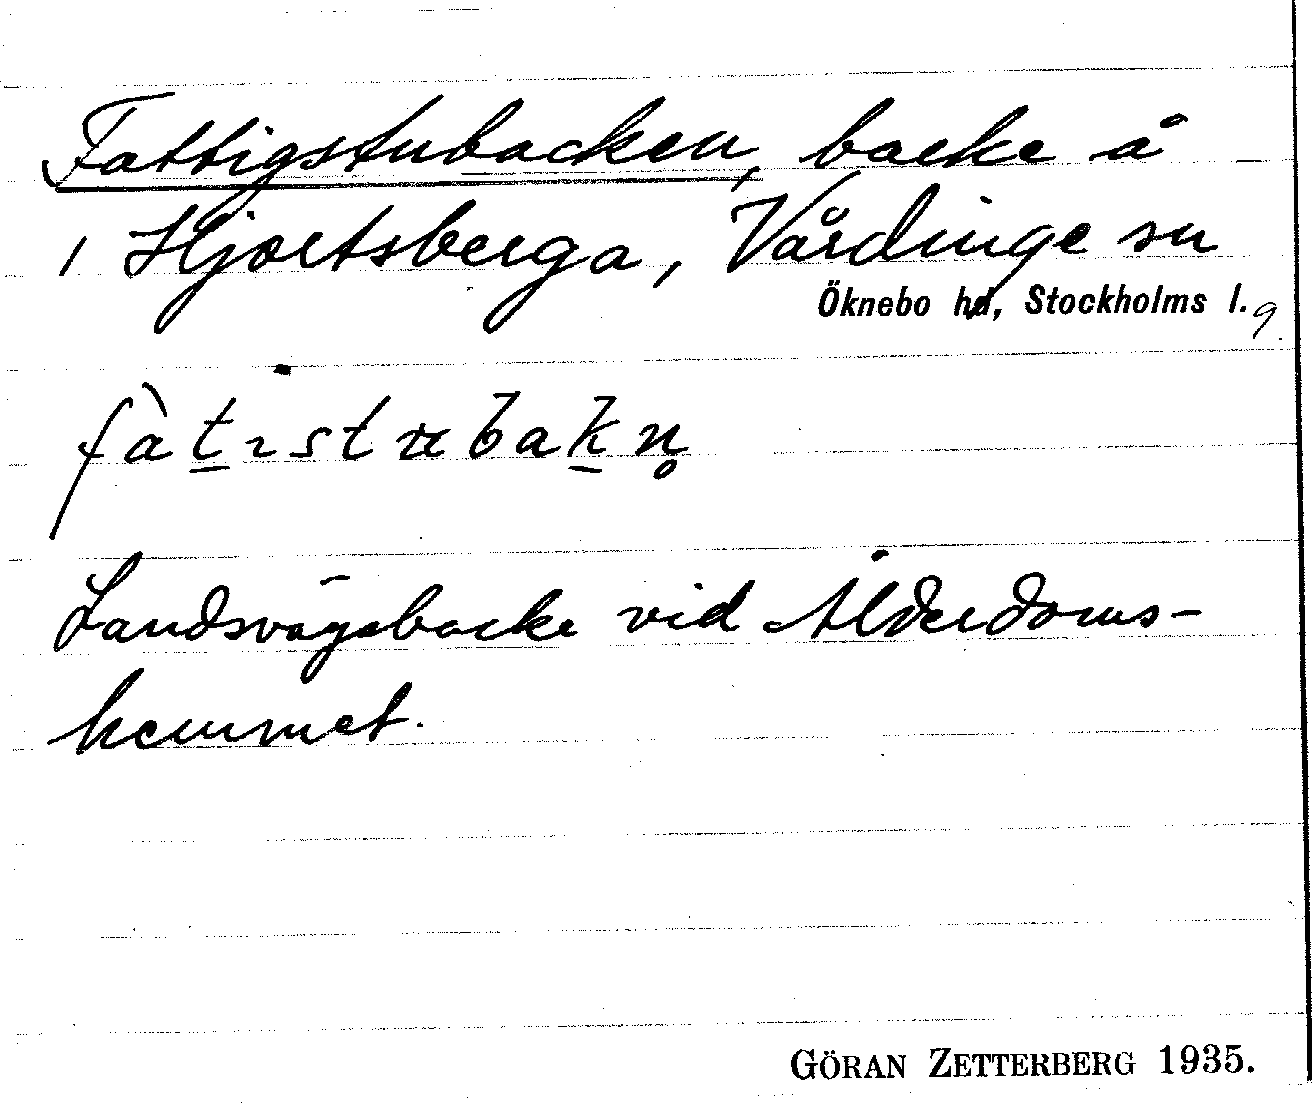 Fattigstubacken, backe å
1 Hjortsberga, Vårdinge sn
Öknebo hd, Stockholms l.
fàt̲ɩstubak̲n̥
Landsvägsbacke vid Ålderdoms-
hemmet.
GÖRAN ZETTERBERG 1935.